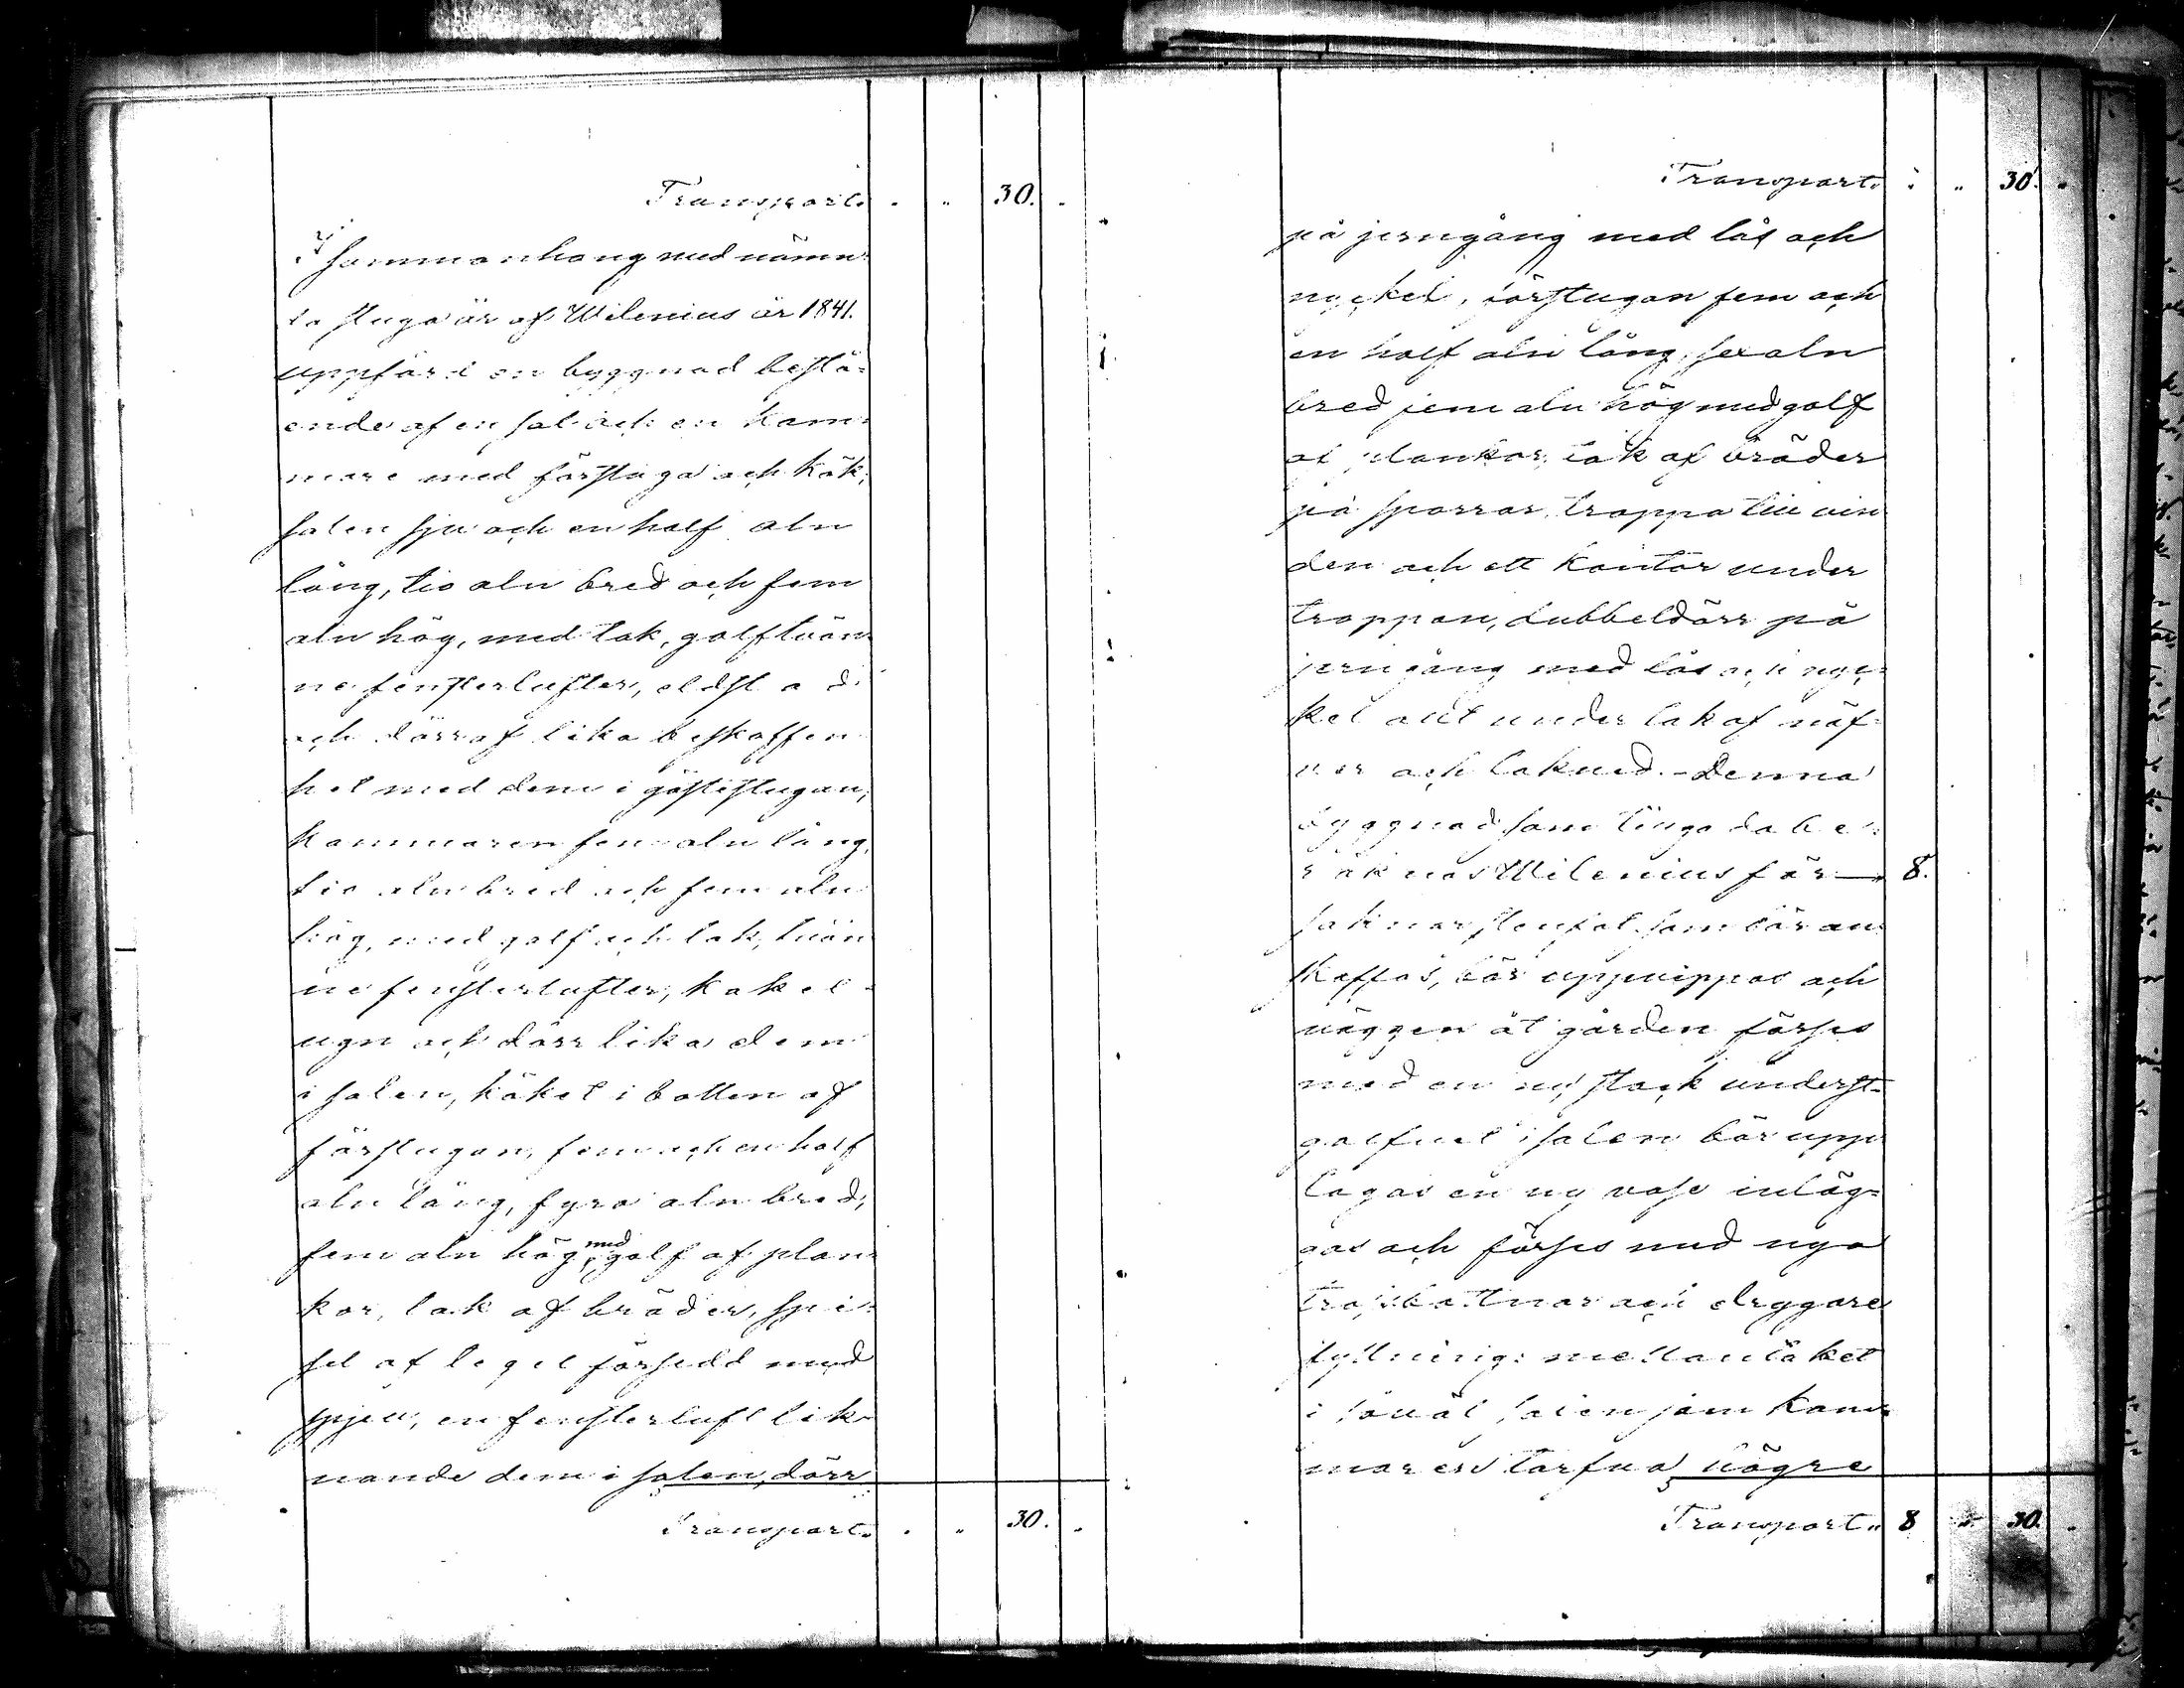 Transport. . " 30. "
I sammanhang med nämn=
da stuga är af Wilenius år 1841.
uppförd en byggnad bestå=
ende af en sal och en kam=
mare med förstuga och kök;
salen sju och en half aln
lång, tio aln bred och fem
aln hög, med tak, golf tvän=
ne fensterlufter, eldstad
och dörr af lika beskaffen
het med dem i gästestugan;
kammaren fem aln lång,
tio aln bred och fem aln
hög, med golf och tak, tvän
ne fensterlufter, kakel=
ugn och dörr lika dem
i salen, köket i botten af
förstugan, fem och en half
aln lång, fyra aln bred,
fem aln hög, med golf af plan=
kor, tak af bräder, spi=
sel af tegel försedd med
spjell, en fensterluft lik=
nande dem i salen, dörr
Transport. . " 30. "
Transport. . " 30. "
på jerngång med lås och
nyckel, förstugan fem och
en half aln lång, sex aln
bred fem aln hög med golf
af plankor, tak af bräder
på sparrar, trappa till vin
den och ett kontor under
trappan, dubbeldörr på
jerngång med lås och nyc=
kel allt under tak af näf=
ver och takved. - Denna
byggnad som tillgodobe=
räknas Wilenius för — 8.
saknar stenfot som bör an
skaffas, bör uppvippas och
väggen åt gården förses
med en ny stock underst=
golfvet i salen bör upp
tagas en ny vase inläg=
gas och förses med nya
trossbottnar och drygare
fyllning: mellantaket
i såväl salen som kam=
maren tarfva högre
Transport " 8 " 30. "